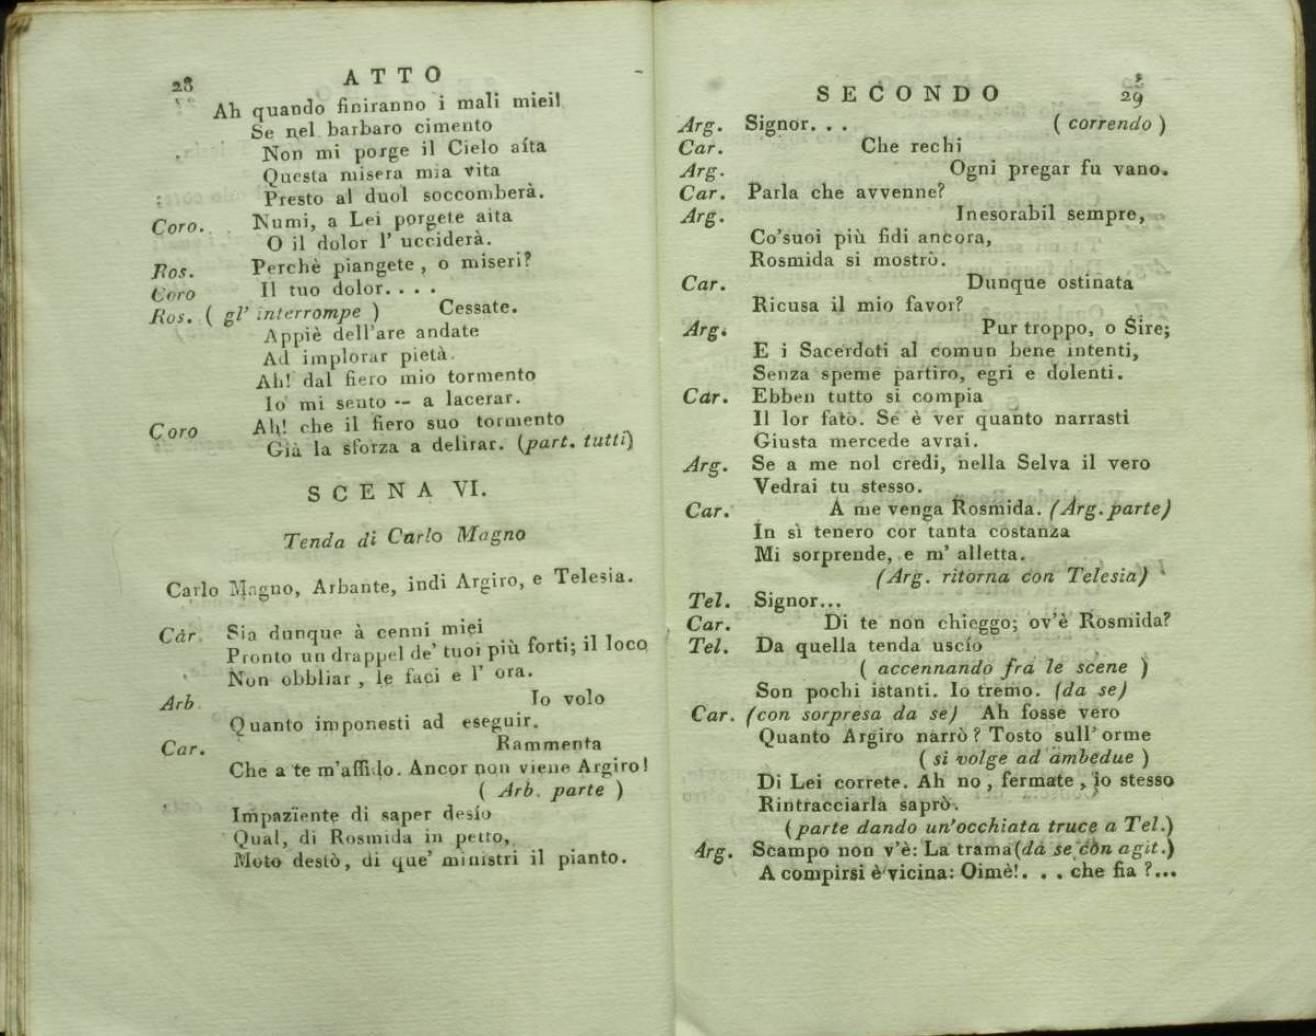 28
ATTO
Ah quando finiranno i mali miei!
Se nel barbaro cimento
Non mi porge il Cielo aíta
Questa misera mia vita
Presto al duol soccomberà.
Coro. Numi, a Lei porgete aita
O il dolor l' ucciderà.
Ros. Perchè piangete, o miseri?
Coro Il tuo dolor. . . .
Ros. ( gl' interrompe ) Cessate.
Appiè dell'are andate
Ad implorar pietà.
Ah! dal fiero mio tormento
Io mi sento -- a lacerar.
Coro Ah! che il fiero suo tormento
Già la sforza a delirar. (part. tutti)
SCENA VI.
Tenda di Carlo Magno
Carlo Magno, Arbante, indi Argiro, e Telesia.
Car. Sia dunque à cenni miei
Pronto un drappel de' tuoi più forti; il loco
Non obbliar, le faci e l' ora.
Arb. Io volo
Quanto imponesti ad eseguir.
Car. Rammenta
Che a te m'affido. Ancor non viene Argiro!
( Arb. parte )
Impazïente di saper desío
Qual, di Rosmida in petto,
Moto destò, di que' ministri il pianto.
SECONDO
29
Arg. Signor. . . ( correndo )
Car. Che rechi
Arg. Ogni pregar fu vano.
Car. Parla che avvenne?
Arg. Inesorabil sempre,
Co'suoi più fidi ancora,
Rosmida si mostrò.
Car. Dunque ostinata
Ricusa il mio favor?
Arg. Pur troppo, o Sire;
E i Sacerdoti al comun bene intenti,
Senza speme partiro, egri e dolenti.
Car. Ebben tutto si compia
Il lor fato. Se è ver quanto narrasti
Giusta mercede avrai.
Arg. Se a me nol credi, nella Selva il vero
Vedrai tu stesso.
Car. A me venga Rosmida. (Arg. parte)
In sì tenero cor tanta costanza
Mi sorprende, e m' alletta.
(Arg. ritorna con Telesia)
Tel. Signor...
Car. Di te non chieggo; ov'è Rosmida?
Tel. Da quella tenda uscío
( accennando fra le scene )
Son pochi istanti. Io tremo. (da se)
Car. (con sorpresa da se) Ah fosse vero
Quanto Argiro narrò? Tosto sull' orme
( si volge ad ambedue )
Di Lei correte. Ah no, fermate, io stesso
Rintracciarla saprò.
(parte dando un'occhiata truce a Tel.)
Arg. Scampo non v'è: La trama (da se con agit.)
A compirsi è vicina: Oimè!. . . che fia?...